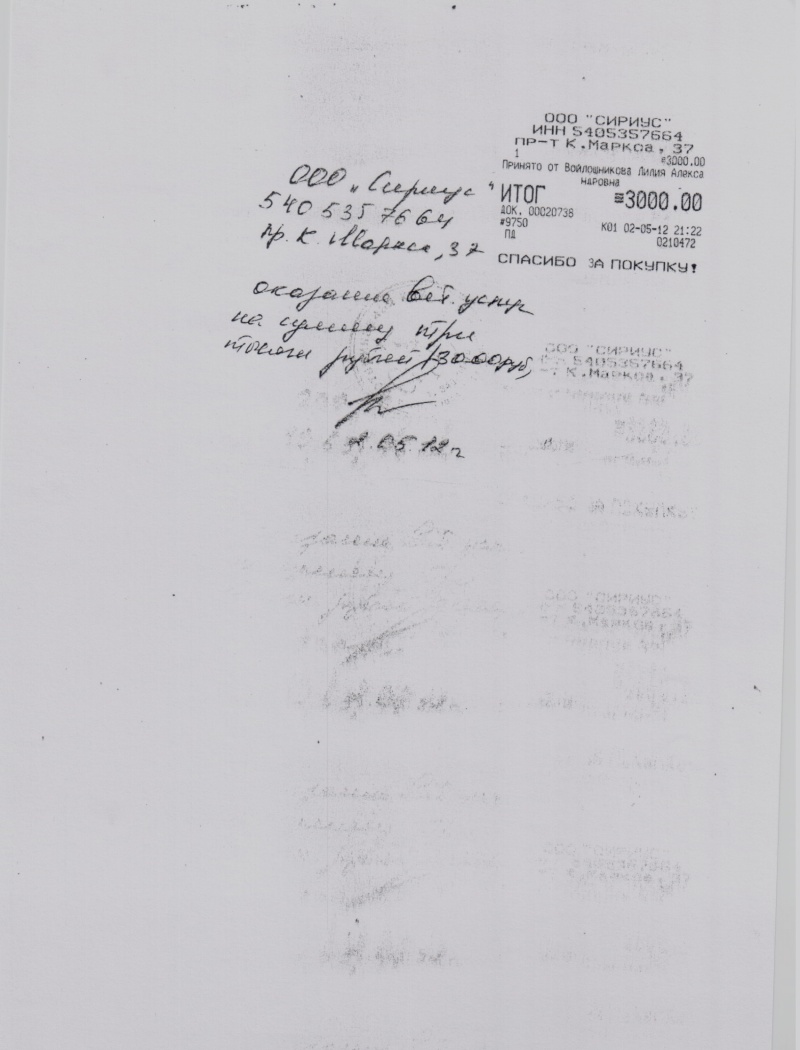 ООО "СИРИУС"
ИНН 5405357664
ПР-Т К.Маркса, 37
1
≡3000.00
Принято от Войлошникова Лилия Алекса
ндровна
ИТОГ ≡3000.00
ДОК. 00020738
#9750 К01 02-05-12 21:22
ПД 0210472
СПАСИБО ЗА ПОКУПКУ!
ООО "Сириус"
5405357664
пр. К. Маркса, 37
оказание вет. услуг
на сумму три
тысячи рублей /3000руб,
2.05.12г
ООО "СИРИУС"
5405357664
Т К.Маркса, 37
ООО "СИРИУС"